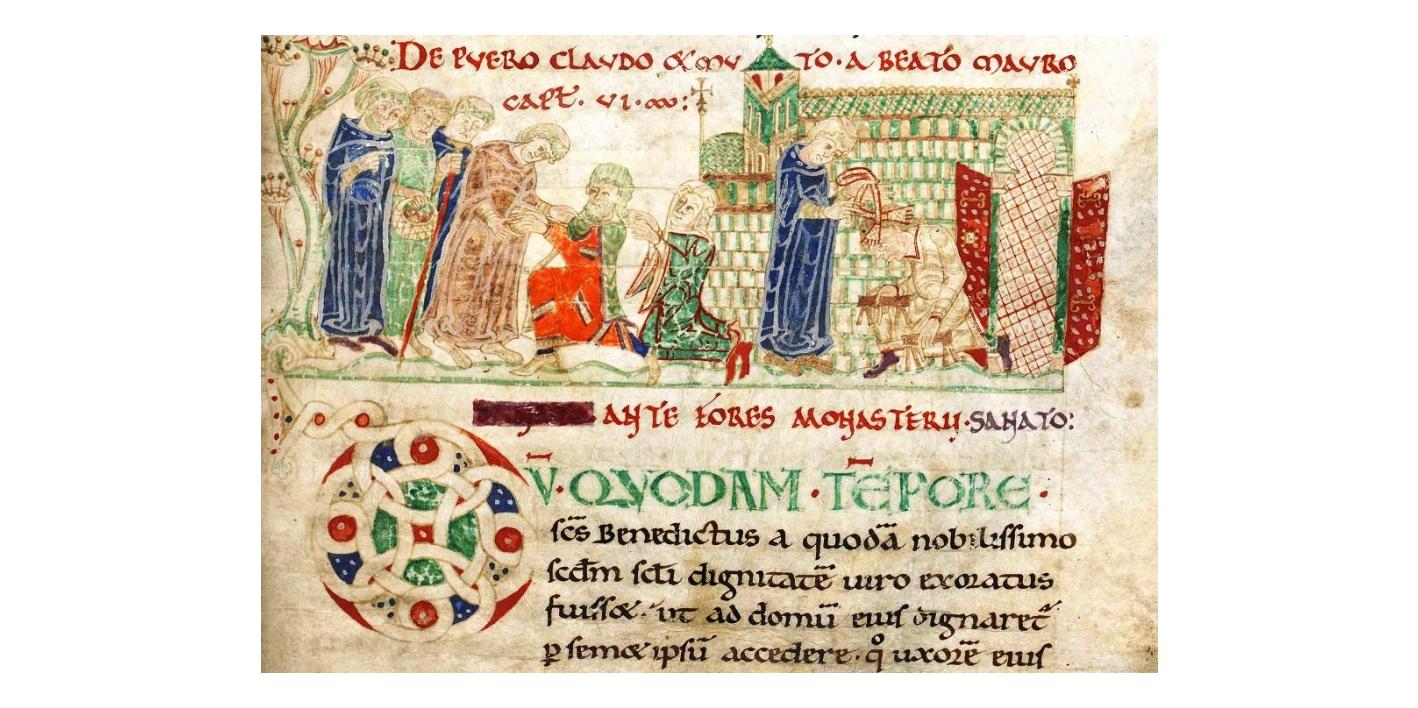 DE PVERO CLAVDO & MVTO· A BEATO MAVRO
CAPT̅. VI·
ANTE FORES MONASTERII·SANATO:
V̅· QVODAM · TE̅PORE ·
sc̅s Benedictus a quoda̅ nobilissimo
scd̅m scl̅i dignitate̅ uiro exoratus
fuiss&· ut ad domu̅ eius dignaret̅
ꝑ sem&ipsu̅ accedere· qͦ uxore̅ eius